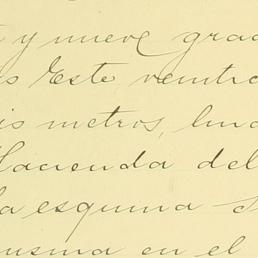 y nueve grad
Este veintic
is metros, lin
Hacienda del
la esquina S
misma en el